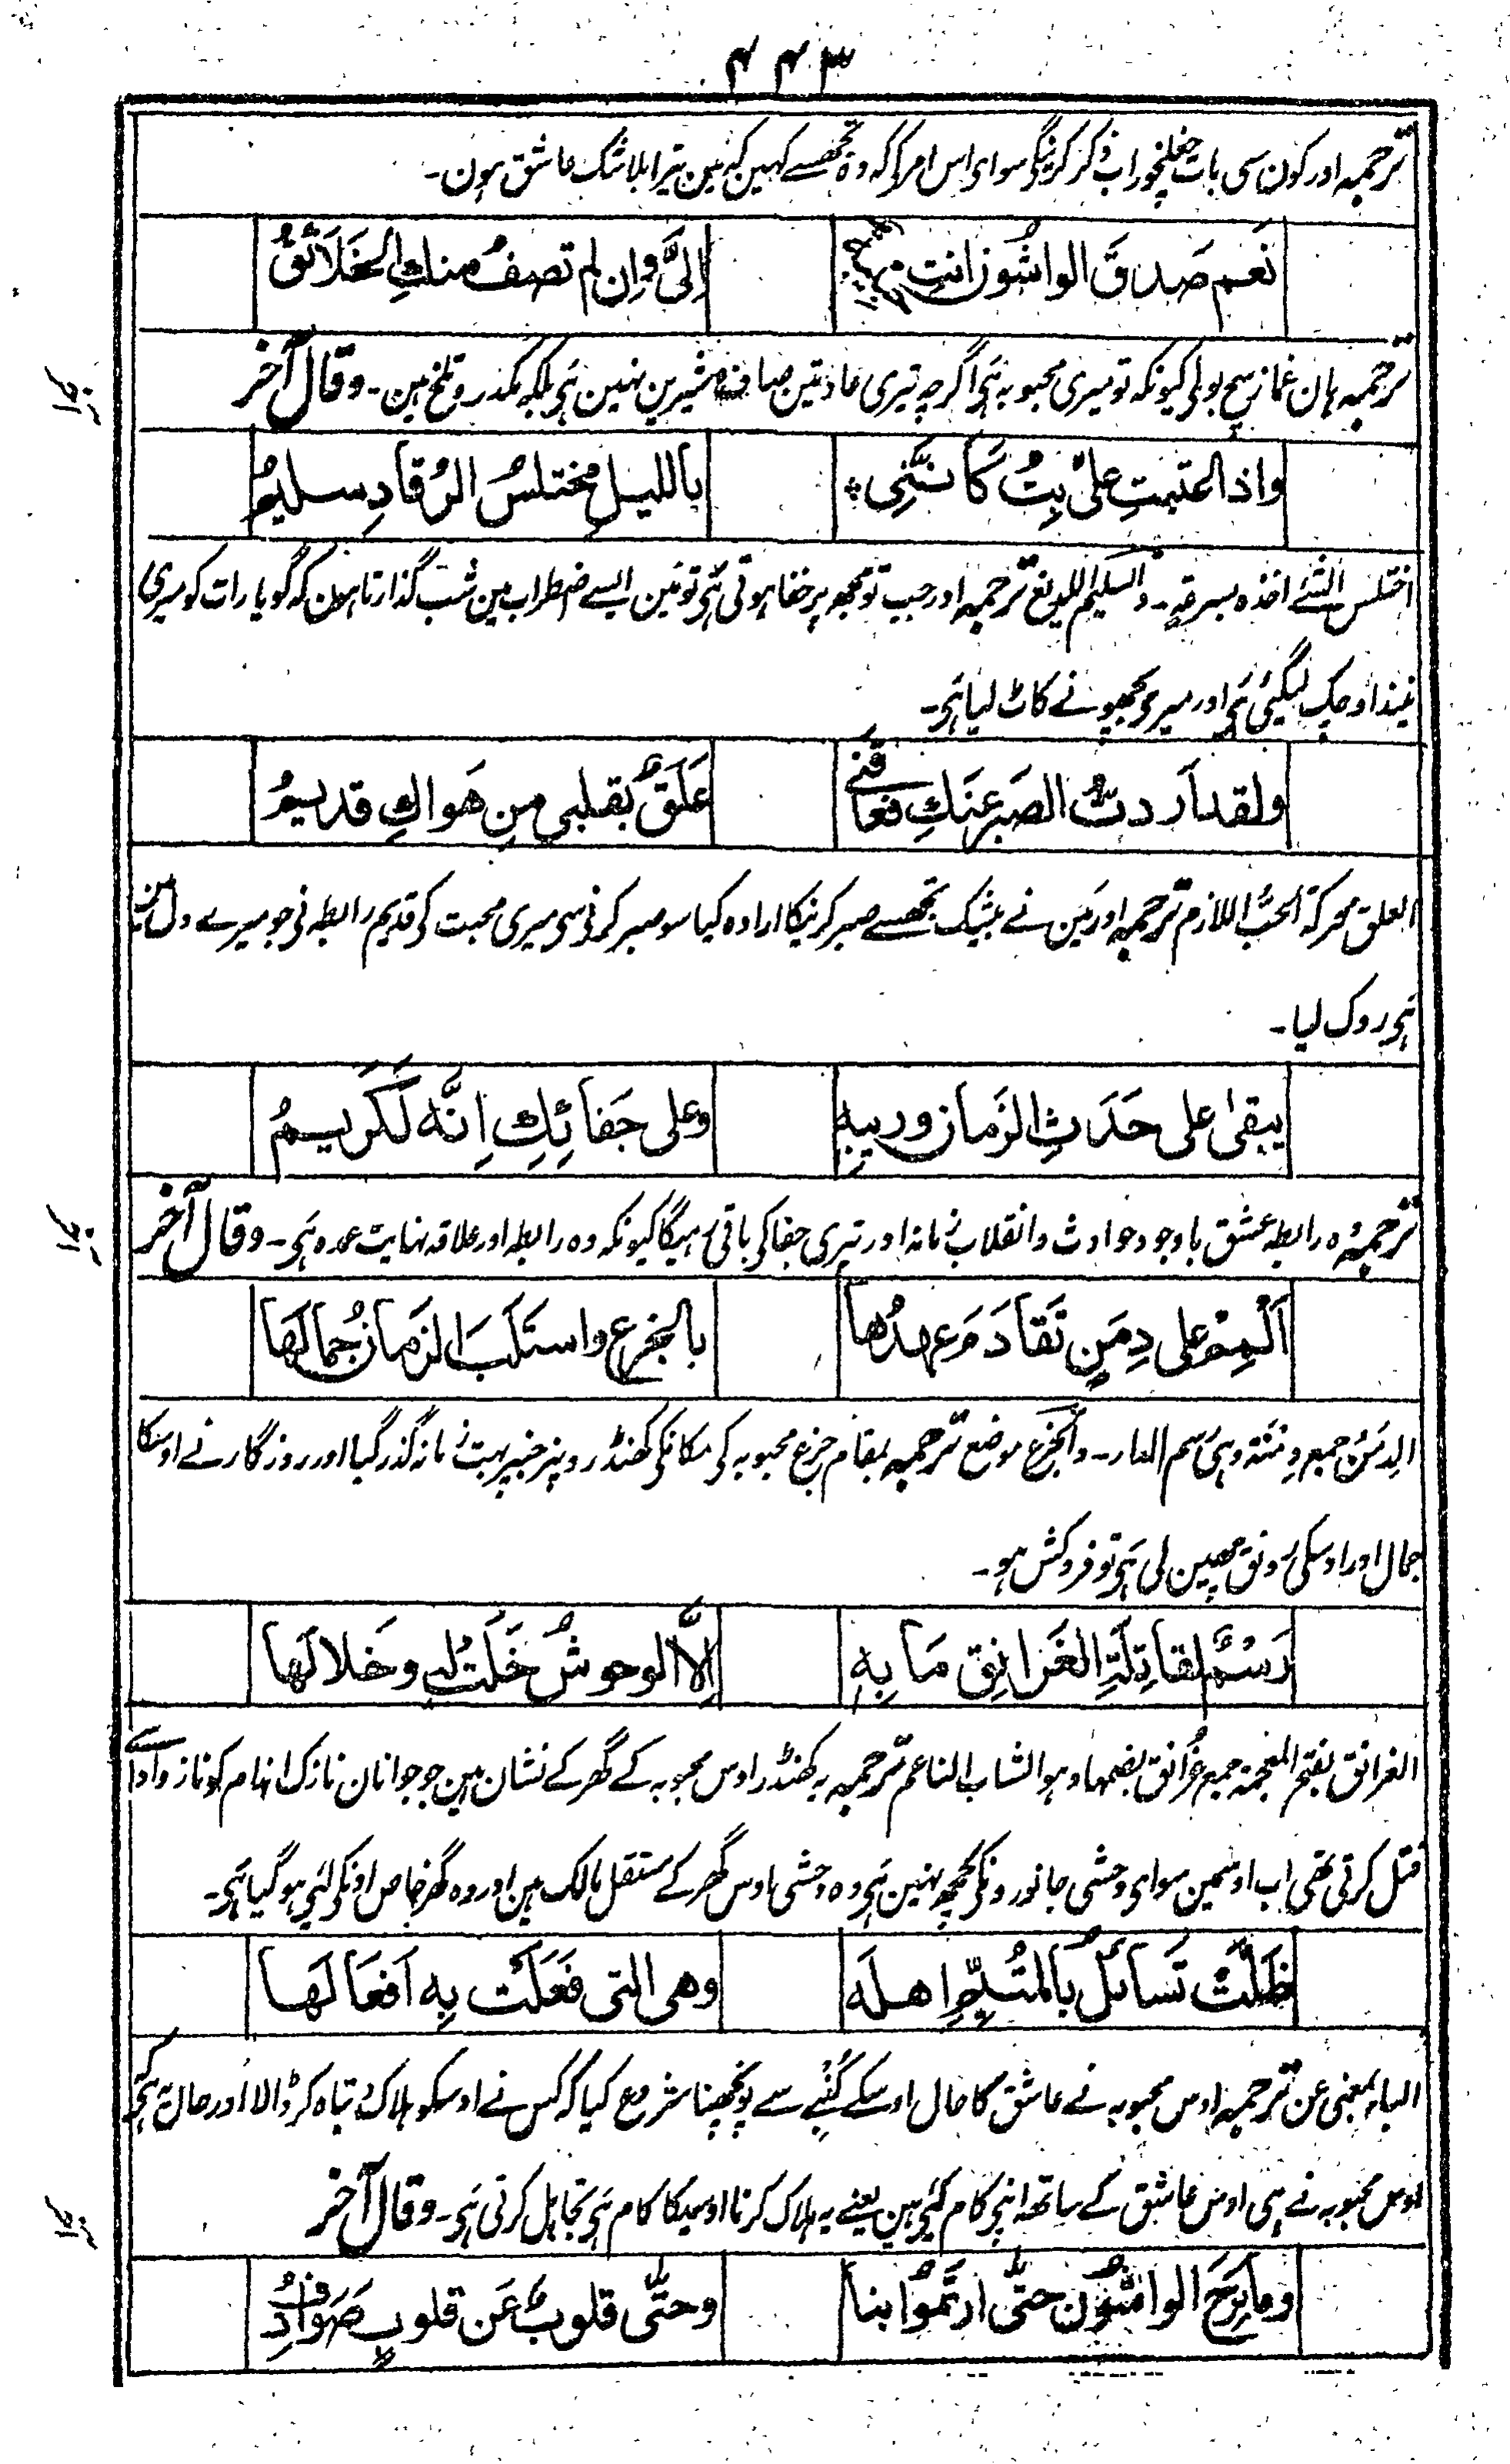 ۴۴۳
ترجمہ اور کون سی بات چغلخور اب ذکر کرینگی سوای اس امر کی کہ وہ تجھسے کہین کہ مین تیرا بلا شک عاشق ہون۔
نَعم صَدقَ الواشُون انتِ حبیبةٌ الیَّ وان لم تصفُ منكِ الخَلَائقُ
ترجمہ ہان غماز سچ بولی کیونکہ تو میری محبوبہ ہی اگرچہ تیری عادتین صاف و شیرین نہین ہی بلکہ مکدر و تلخ ہین۔ وقال آخر
واذا عتبتِ علیَّ بِتُّ كاننی باللیل مختلسُ الرُقادِ سلیمُ
اختلس الشئے اخذہ بسرقة۔ والسلیم اللدیغ ترجمہ اور جب تو مجھ پر خفا ہوتی ہی تو مین ایسے اضطراب مین شب گذارتا ہون کہ گویا رات کو میری
نیند اوچک لیگئی ہی اور میری بچھو نے کاٹ لیا ہی۔
ولقد اَردتُ الصَبرَ عنَكِ فعاقنی عَلَقٌ بقلبی مِن هَواكِ قدیمُ
العلق محرکة الحب اللازم ترجمہ اور مین نے بیشک تجھسے صبر کرنیکا ارادہ کیا سو صبر کرنی سی میری محبت کی قدیم رابطہ نی جو میرے دل مین
ہی روک لیا۔
یبقی علی حَدَثِ الزَمان وریبِهِ وعلی جَفائِكِ اِنَّه لَكَریمُ
ترجمہ وہ رابطہ عشق باوجود حوادث و انقلاب زمانہ اور تیری جفا کی باقی رہیگا کیونکہ وہ رابطہ اور علاقہ نہایت عمدہ ہی۔ وقال آخر
اَلمِمْ علی دِمَنٍ تَقادَمَ عهدُها بالجِزع واستَلَبَ الزمانُ جمالَها
الدِمَنُ جمع دِمْنَة وہی رسم الدار۔ والجزع موضع ترجمہ بمقام جزع محبوبہ کی مکانکی کھنڈرونپر جنپر بہت زمانہ گذر گیا اور روزگار نے اوسکا
جمال اور اوسکی رونق چھین لی ہی تو فروکش ہو۔
رَسْمٌ لقاتِلَةِ الغَرانِقِ مَا بِهِ اِلّا الوحوشُ خَلَتْ له وخَلا لَها
الغرانق بفتح المعجمة جمع غُرانق بضمها وہو الشاب الناعم ترجمہ یہ کھنڈر اوس محبوبہ کے گھر کے نشان ہین جو جوانان نازک اندام کو ناز و ادا سے
قتل کرتی تھی اب اوسمین سوای وحشی جانورونکی کچھ نہین ہی وہ وحشی اوس گھر کے مستقل مالک ہین اور وہ گھر خاص اونکی لئی ہو گیا ہی۔
ظَلَّتْ تُسائلُ بالمتیَّمِ اهلَه وهی التی فَعَلَت بِه اَفعَالَها
الباء بمعنی عن ترجمہ اوس محبوبہ نے عاشق کا حال اوسکے کنبے سے پونچھنا شروع کیا کہ کس نے اوسکو ہلاک و تباہ کر ڈالا اور حال یہ ہی کہ
اوس محبوبہ نے ہی اوس عاشق کے ساتھ اپنی کام کئی ہین یعنے یہ ہلاک کرنا اوسیکا کام ہی تجاہل کرتی ہی۔ وقال آخر
وما بَرِحَ الواشُون حتّٰی ارتَمَوا بنا وحتّٰی قلوبٌ عَن قلوبٍ صَوادِفُ